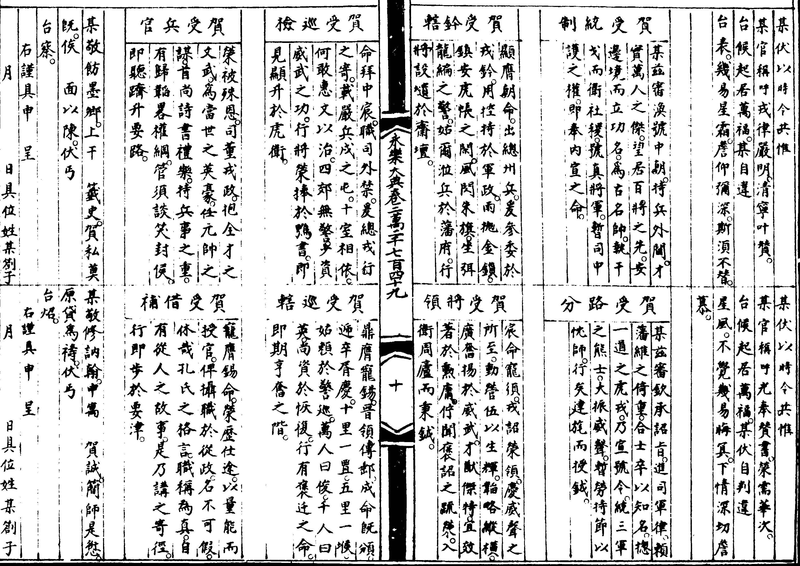 某伏以時令共惟
某官稱呼戎律嚴明清寧叶贊
台候起居萬福某自違
台表幾易星霜詹仰彌深斯須不替
賀受統制
某茲審渙號中朝持兵外閫才
實萬人之傑望若百將之先安
邊境而立功名為古名帥執干
戈而衛社稷號真將軍暫司中
護之權即奉內宣之命
賀受鈐轄
顯膺朝命出總州兵爰參委於
戎鈐用控持於軍政雨拋金鎖
鎮安虎帳之間風閃朱旗坐弭
龍編之警姑爾涖兵於藩府行
將設壇於齋壇
某伏以時令共惟
某官稱呼光奉贊書榮需華次
台候起居萬福某伏自判違
星風不覺幾易晦冥下情深切詹
慕
賀受路分
某茲審欽承詔旨進司軍律賴
藩維之倚重合士卒以知名總
一道之虎戎乃宣號令統三軍
之熊士大振威聲暫勞持節以
忱師行矣建旄而授鉞
賀受將領
宸命寵須戎詔榮領慶威聲之
所至動營伍以生輝韜略縱橫
廣奮揚於威武才猷傑特宜效
著於勳庸佇聞褒詔之疏榮入
衛周廬而秉鉞
永樂大典卷二萬二千七百四十九
十
賀受巡檢
命拜中宸職司外禁爰總戎行
之寄載嚴兵戍之屯十室相依
何敢患文以治四郊無警爭資
威武之功行將榮捧於鶚書即
見顯升於虎衛
賀受兵官
榮被殊恩司董戎政抱全才之
文武為當世之英豪任元帥之
謀首尚詩書禮樂持兵事之重
有歸韜畧權綱管須談笑封侯
即聽躋升要路
某敬飭墨鄉上干 籤史賀私莫
既俟 面以陳伏丐
台察
右謹具申 呈
月 日具位姓某劄子
賀受巡轄
鼎膺寵錫晉領傳郵成命既頒
迎卒胥慶十里一置五里一堠
姑賴於警巡萬人曰俊千人曰
英尚資於恢復行有褒迁之命
即期亨喬之階
賀受借補
寵膺錫命榮歷仕途以量能而
授官俾攝職於從政名不可假
休哉孔氏之格言職稱為真自
有從人之故事是乃講之寄徑
行即步於要津
某敬修訥翰申寫 賀誠師是愆
原貸為禱伏丐
台炤
右謹具申 呈
月 日具位姓某劄子